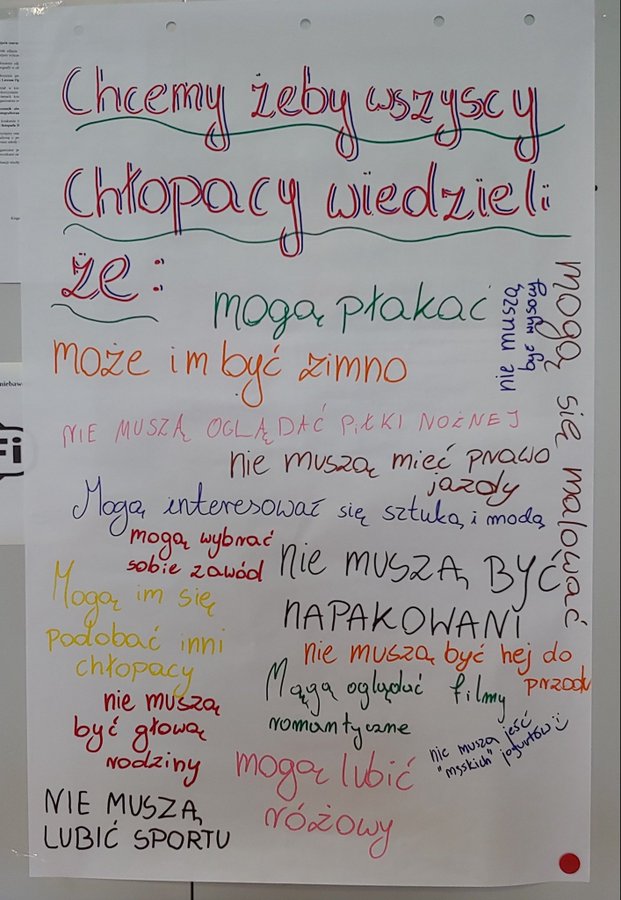 Chcemy żeby wszyscy
chłopacy wiedzieli
że:
mogą płakać
nie muszą
być wysocy
mogą się malować
może im być zimno
NIE MUSZĄ OGLĄDAĆ PIŁKI NOŻNEJ
nie muszą mieć prawo
jazdy
Mogą interesować się sztuką i modą
mogą wybrać
sobie zawód
nie MUSZĄ BYĆ
NAPAKOWANI
Mogą im się
podobać inni
chłopacy
nie muszą być hej do
przodu
Mągą oglądać filmy
romantyczne
nie muszą
być głową
rodziny
nie muszą jeść
"męskich" jogurtów :)
mogą lubić
różowy
NIE MUSZĄ
LUBIĆ SPORTU
Fi